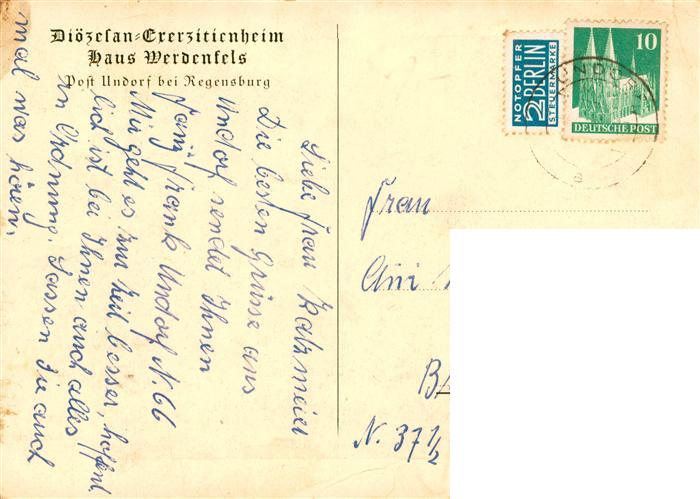 Diözesan-Exerzitienheim
Haus Werdenfels
Post Undorf bei Regensburg
NOTOPFER
2 BERLIN
STEUERMARKE
10
DEUTSCHE POST
UNDORF
a
Liebe Frau Katzmeier
Die besten Grüsse aus
Undorf sendet Ihnen
Frank Undorf N. 66
Mir geht es zur Zeit besser, hoffent
lich ist bei Ihnen auch alles
in Ordnung. Lassen Sie auch
mal was hören.
Frau
N. 37 1/2